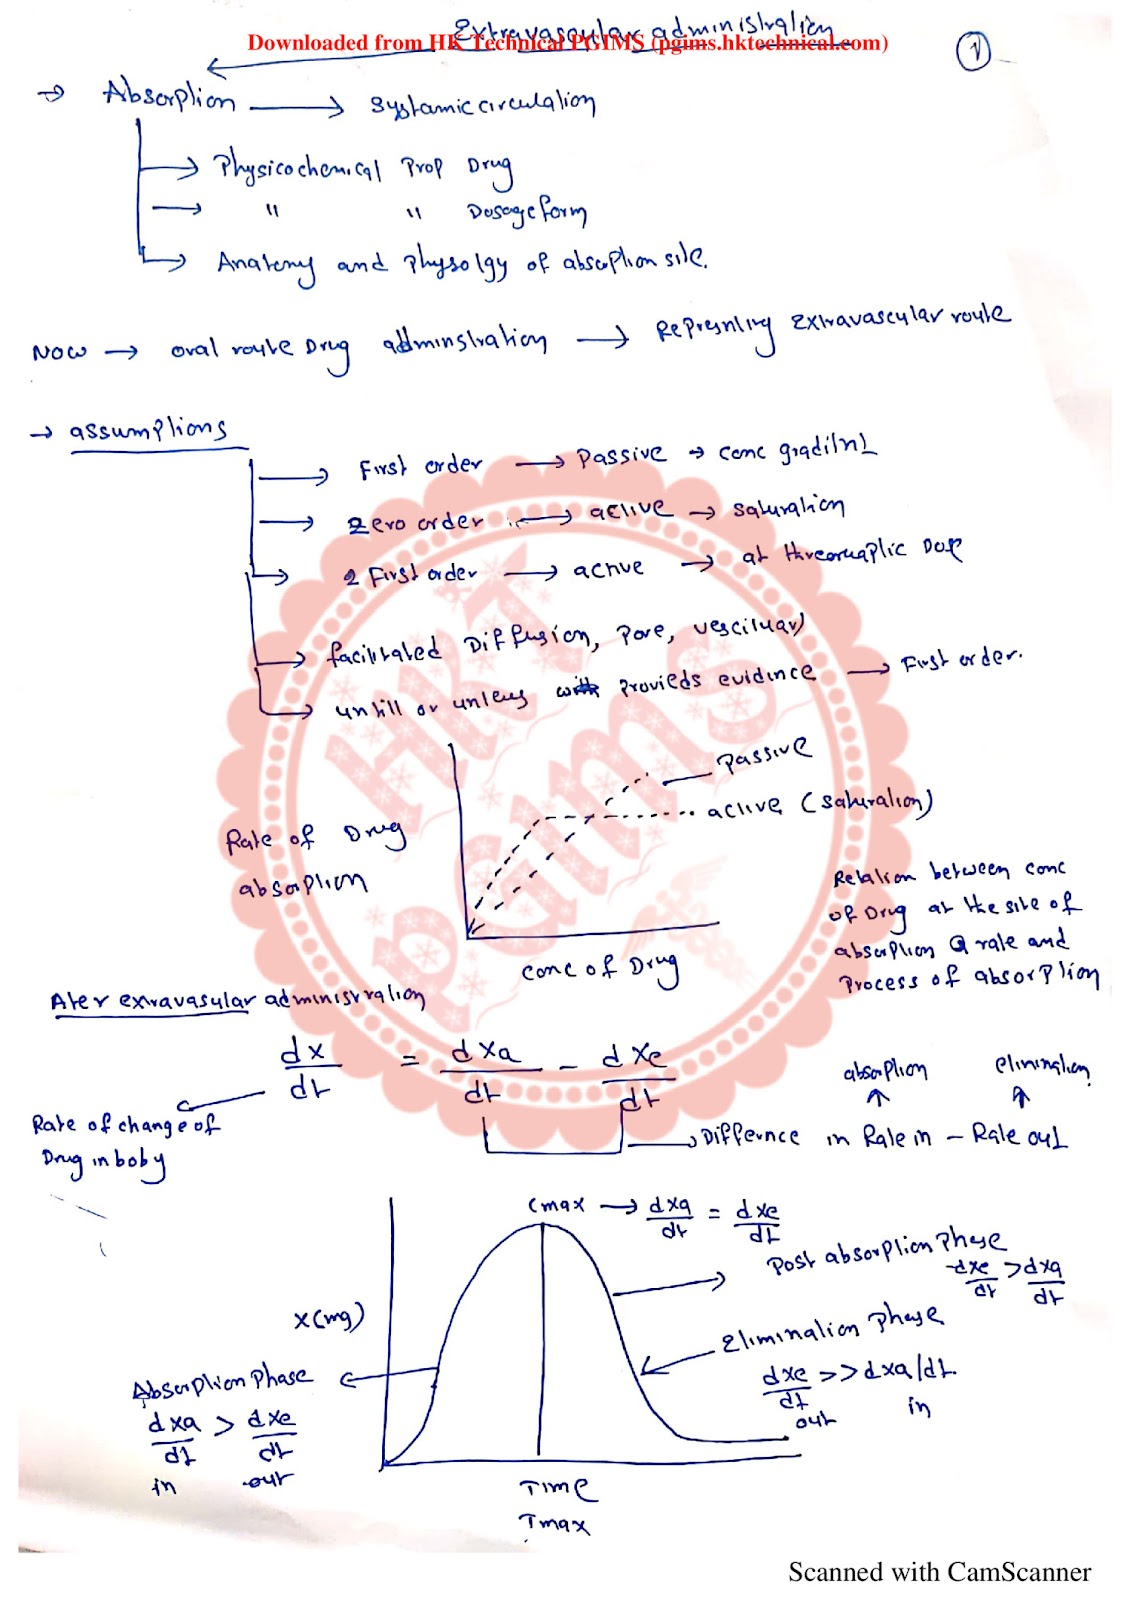 Extravascular administration
Downloaded from HK Technical PGIMS (pgims.hktechnical.com)
1
→ Absorption → Systamic circulation
→ Physicochemical Prop Drug
→ " " Dosage form
→ Anatomy and Physolgy of absorption site.
Now → oral route Drug adminstration → Represnting Extravascular route
→ assumptions
→ First order → Passive → conc gradient
→ Zero order → active → saturation
→ 2 First order → active → at
→ facilitated Diffusion, Pore, vescilular)
→ untill or unless provieds evidence → First order.
Passive
active (saturation)
Rate of Drug
absorption
conc of Drug
Relation between conc
of Drug at the site of
absorption & rate and
Process of absorption
Ater extravasular administration
dx/dt = dxa/dt - dxe/dt
absorption elimination
Rate of change of
Drug in boby
→ Differnce in Rate in - Rate out
Cmax → dxa/dt = dxe/dt
Post absorption Phase
dxe/dt > dxa/dt
X(mg)
Elimination Phase
dxe/dt >> dxa/dt.
out in
Absorption Phase
dxa/dt > dxe/dt
in out
Time
Tmax
HKT
PGIMS
Scanned with CamScanner